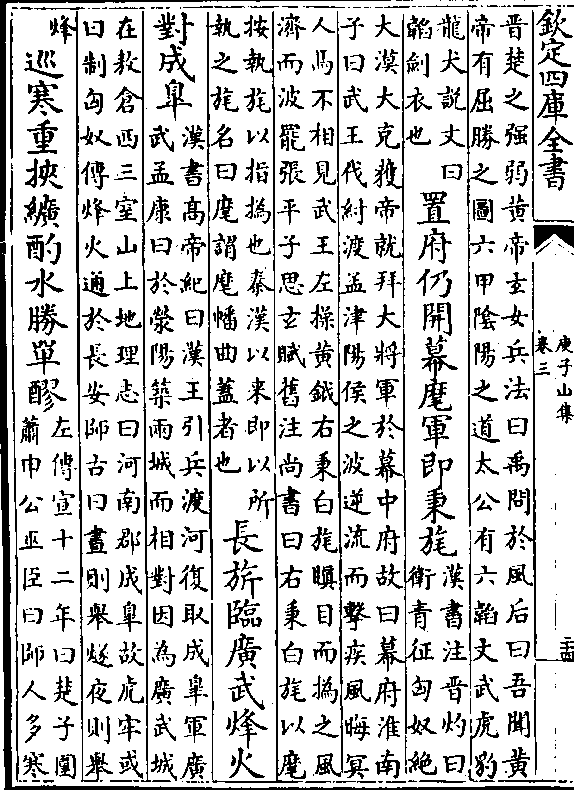 欽定四庫全書
庚子山集
卷三
二十四
晉楚之强弱黄帝玄女兵法曰禹問於風后曰吾聞黄
帝有屈勝之圖六甲陰陽之道太公有六韜文武虎豹
龍犬説文曰
韜劍衣也
置府仍開幕麾軍即秉旄
漢書注晉灼曰
衛青征匈奴絶
大漠大克獲帝就拜大將軍於幕中府故曰幕府淮南
子曰武王伐紂渡孟津陽侯之波逆流而擊疾風晦冥
人馬不相見武王左操黄鉞右秉白旄瞋目而撝之風
濟而波罷張平子思玄賦舊注尚書曰右秉白旄以麾
按執旄以指撝也秦漢以来即以所
執之旄名曰麾謂麾幡曲蓋者也
長旂臨廣武烽火
對成臯
漢書髙帝紀曰漢王引兵渡河復取成臯軍廣
武孟康曰於滎陽築兩城而相對因為廣武城
在敖倉西三室山上地理志曰河南郡成臯故虎牢或
曰制匈奴傳烽火通於長安師古曰晝則舉燧夜則舉
烽
巡寒重挾纊酌水勝單醪
左傳宣十二年曰楚子圍
蕭申公巫臣曰師人多寒